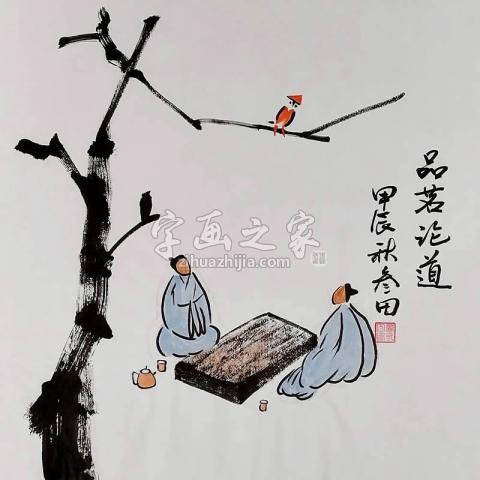 品茗论道
甲辰秋叁田
字画之家
zihuazhijia.com